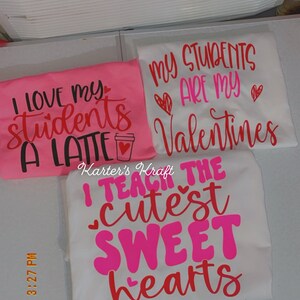 I LOVE MY
students
A LATTE
MY STUDENTS
ARE MY
Valentines
Karter's Kraft
I TEACH THE
cutest
SWEET
hearts
3:27 PM